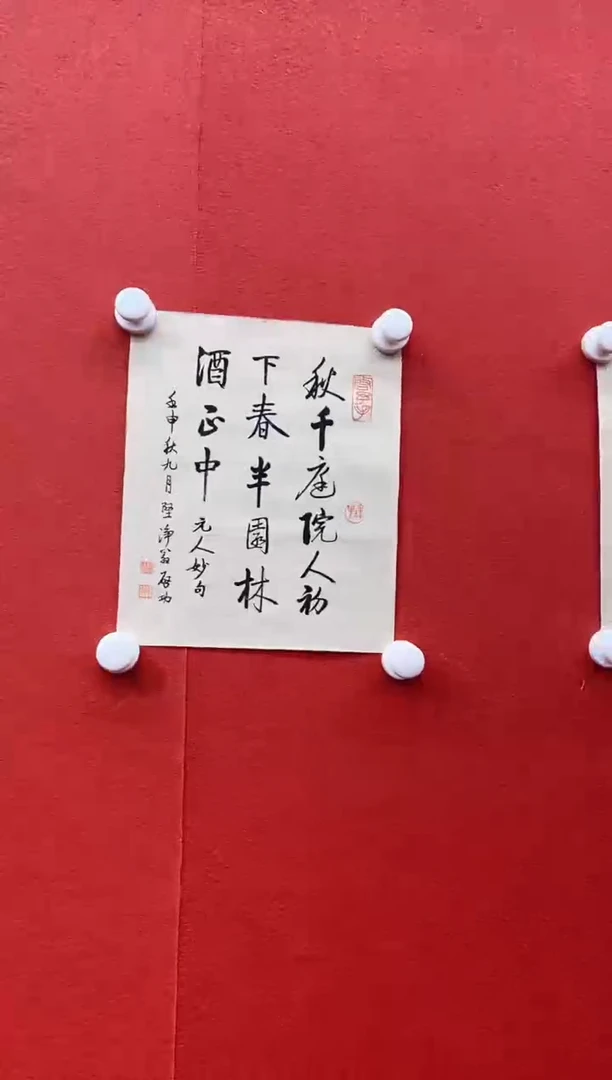 秋千庭院人初
下春半園林
酒正中
元人妙句
壬申秋九月
堅淨翁啟功